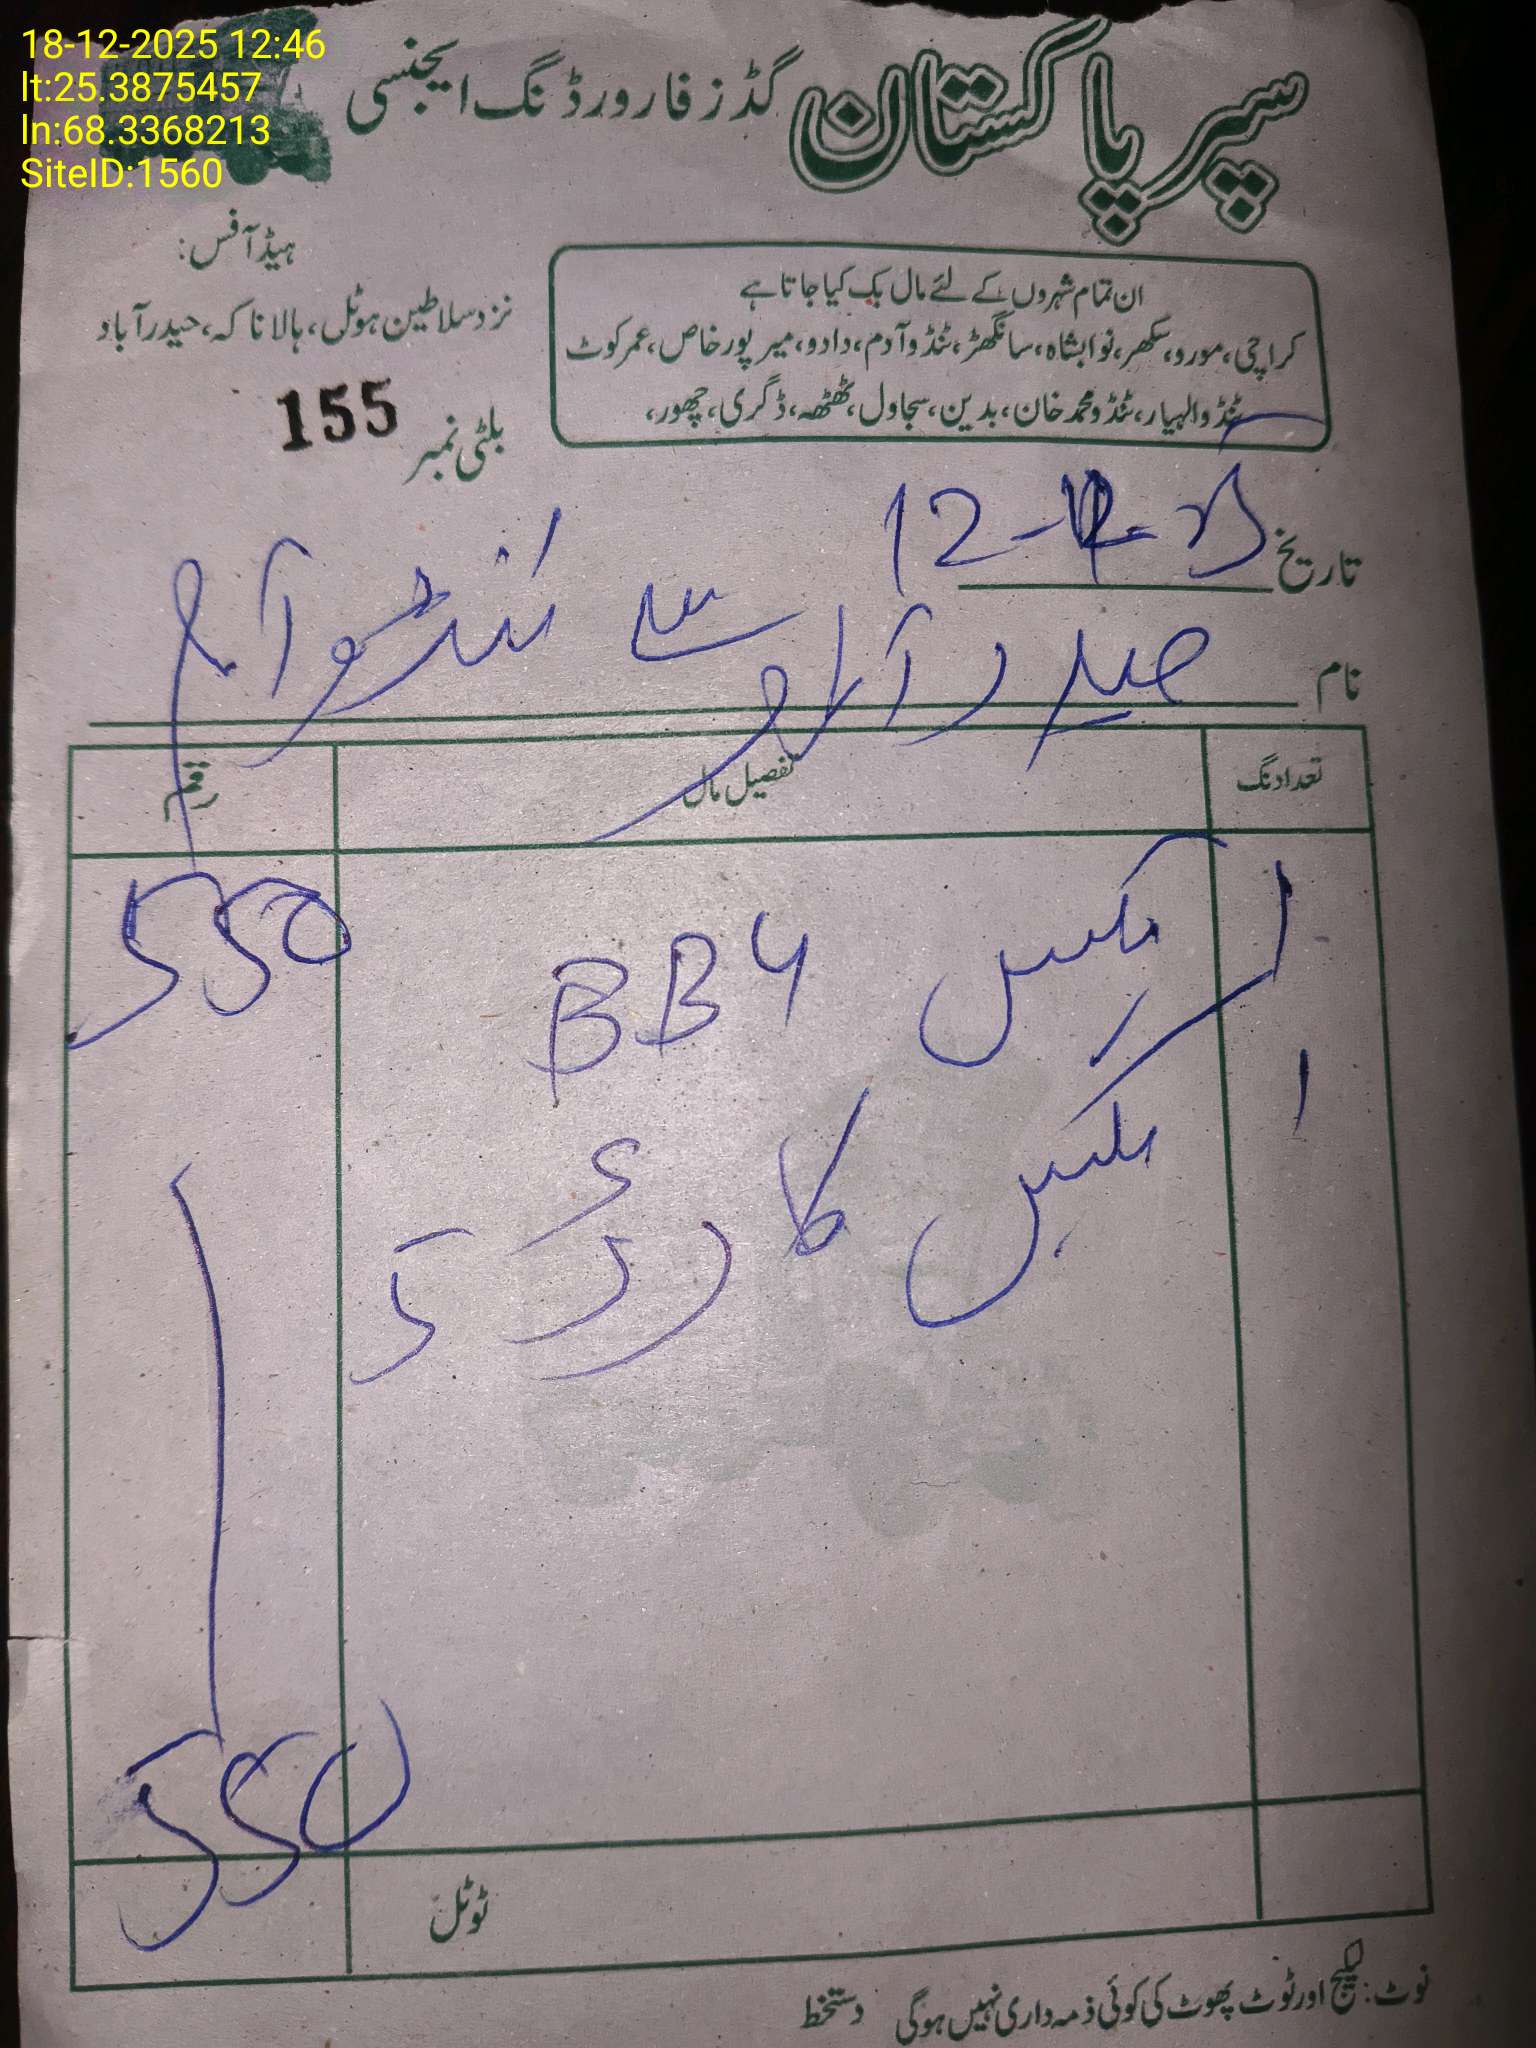 18-12-2025 12:46
lt:25.3875457
ln:68.3368213
SiteID:1560
سپر پاکستان گڈز فارورڈنگ ایجنسی
ہیڈ آفس:
نزد سلاطین ہوٹل، ہالا ناکہ، حیدرآباد
ان تمام شہروں کے لئے مال بک کیا جاتا ہے
کراچی، مورو، سکھر، نوابشاہ، سانگھڑ، ٹنڈو آدم، دادو، میرپور خاص، عمر کوٹ
ٹنڈو الہیار، ٹنڈو محمد خان، بدین، سجاول، ٹھٹھہ، ڈگری، چھور،
بلٹی نمبر 155
تاریخ 12-12-25
نام حیدر آباد سے ٹنڈو آدم
تعداد نگ تفصیل مال رقم
1 بکس BB4 550
1 بکس کا
550
ٹوٹل
نوٹ: لیکیج اور ٹوٹ پھوٹ کی کوئی ذمہ داری نہیں ہوگی دستخط